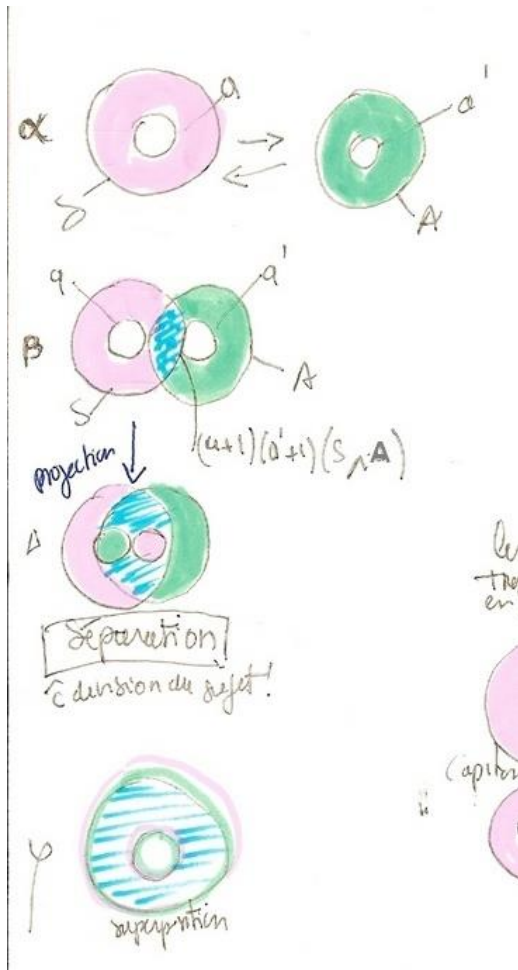 α
a
a'
S
A
a
a'
β
S
A
(a+1)(a'+1)(S ∧ A)
projection
Δ
Séparation
division du sujet !
φ
superposition